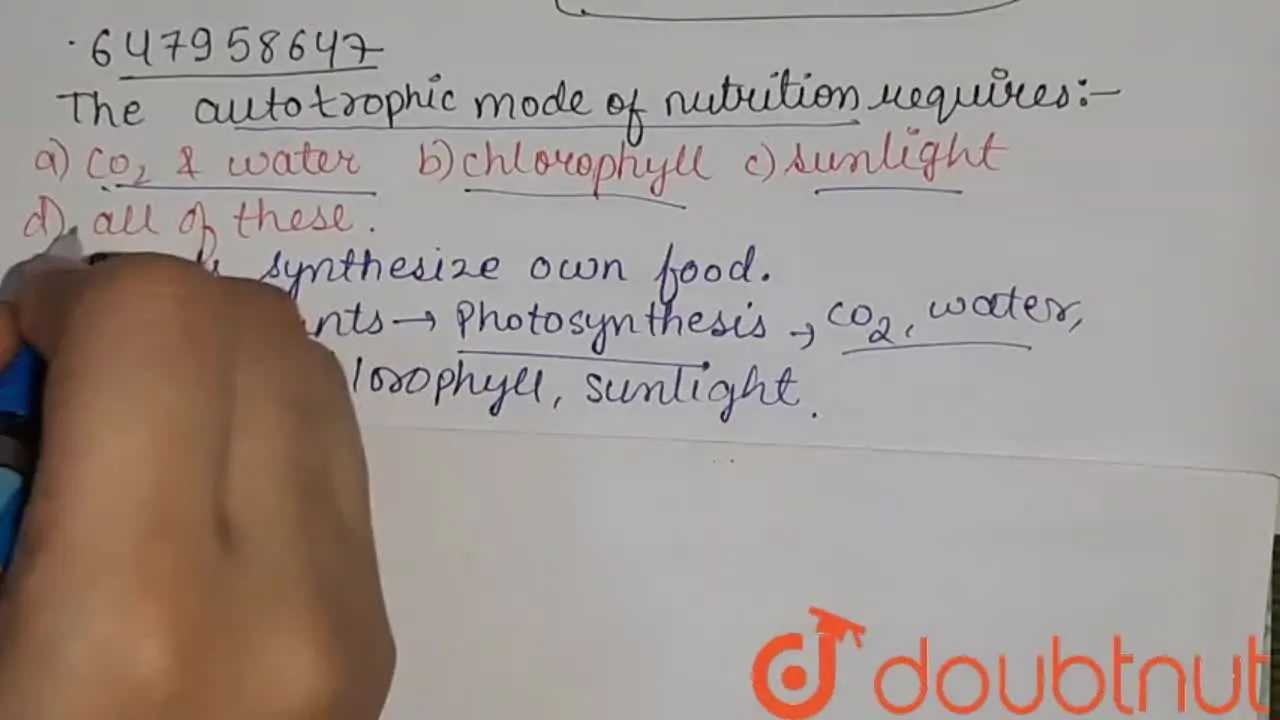 647958647
The autotrophic mode of nutrition requires:-
a) CO2 & water b) chlorophyll c) sunlight
d) all of these.
synthesize own food.
→ Photosynthesis → CO2, water,
sunlight.
doubtnut